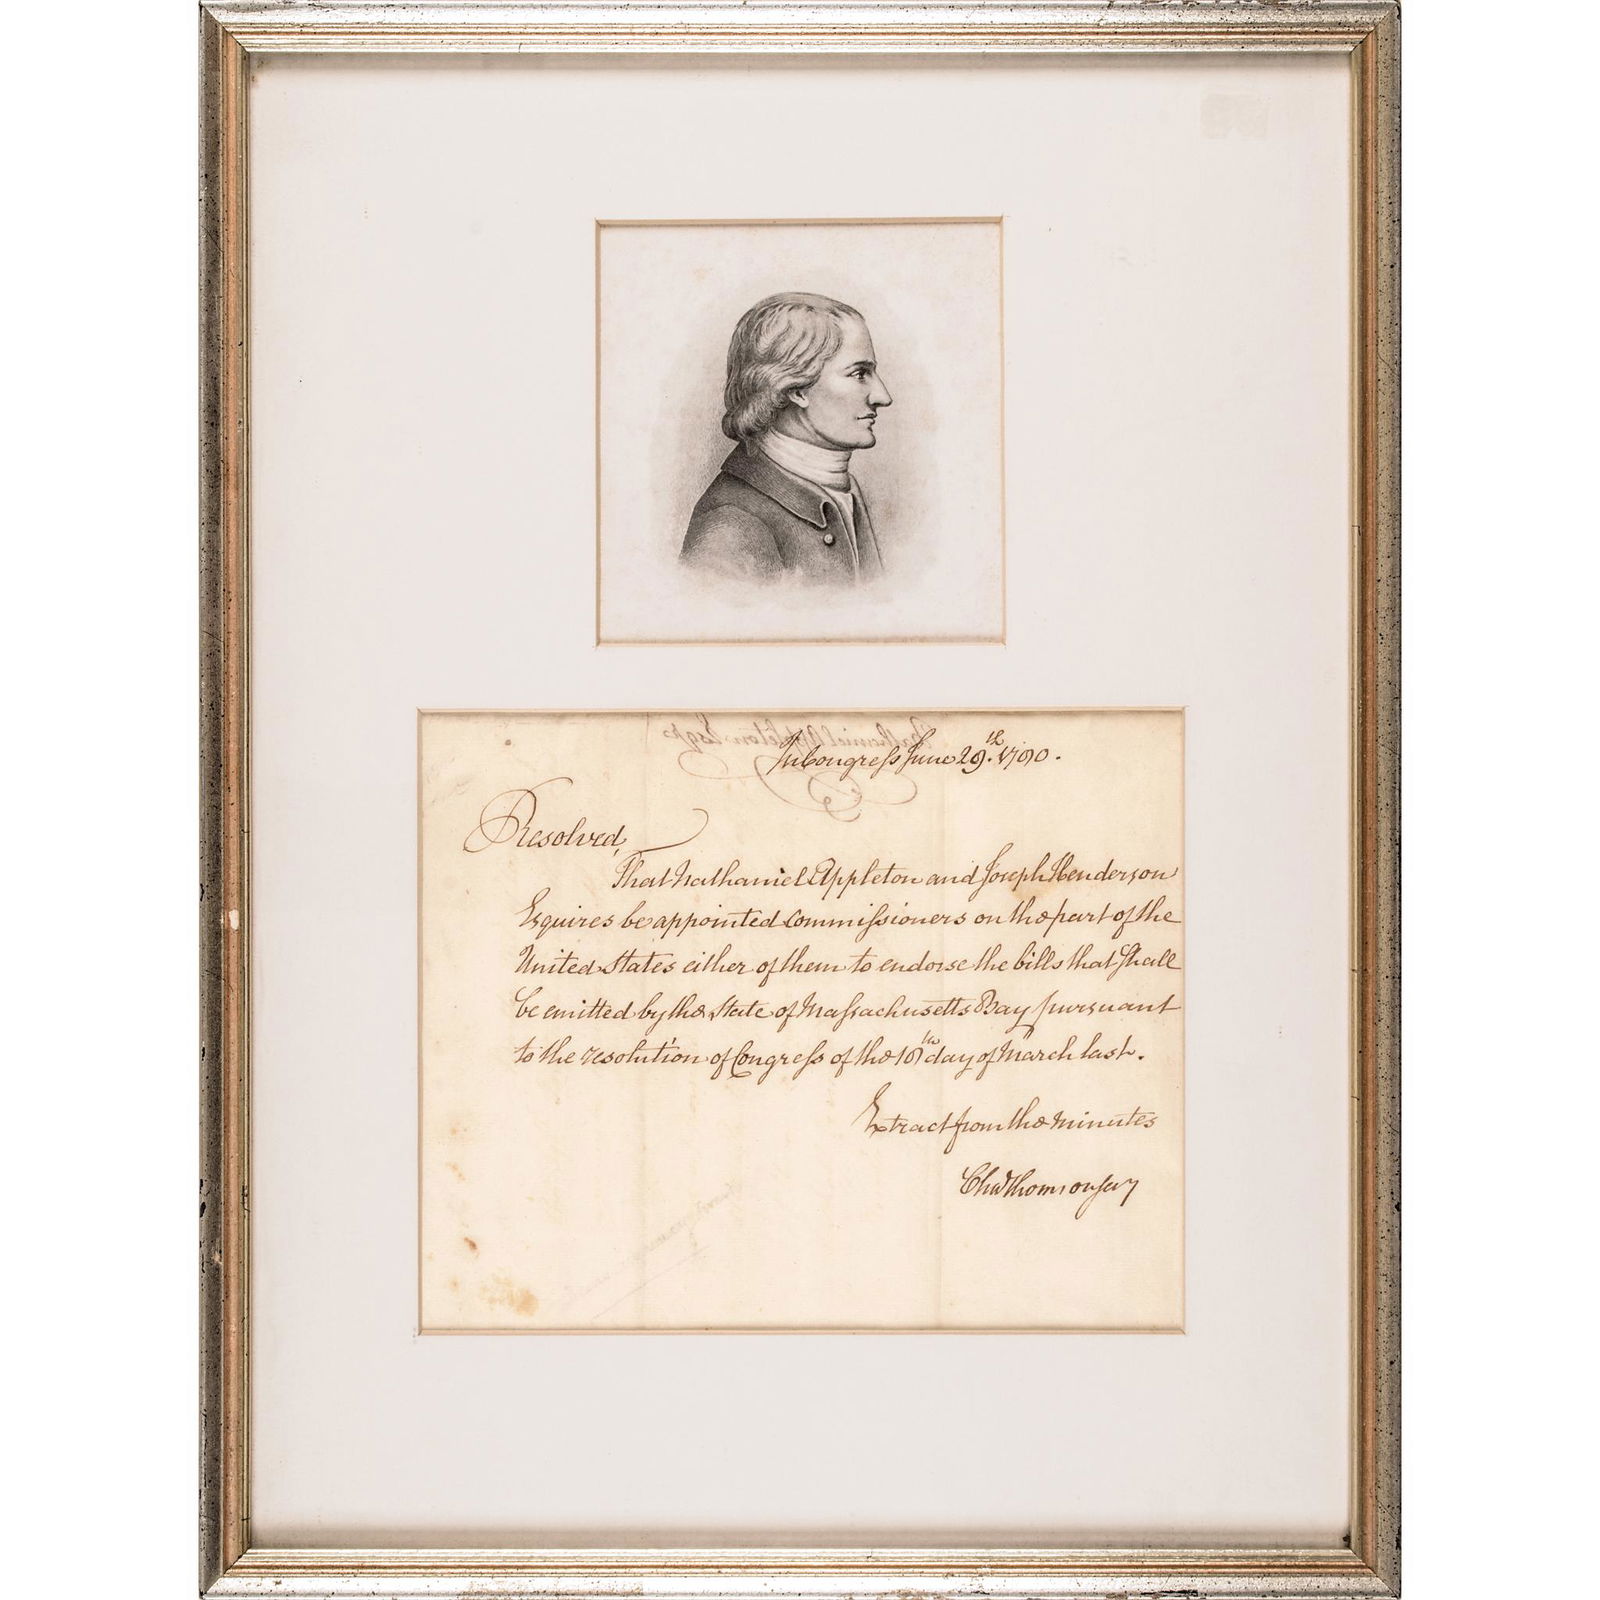 Nathaniel Appleton Esqr
In Congress June 29th. 1780.
Resolved,
That Nathaniel Appleton and Joseph Henderson
Esquires be appointed commissioners on the part of the
United States either of them to endorse the bills that shall
be emitted by the State of Massachusetts Bay pursuant
to the resolution of Congress of the 18th day of March last.
Extract from the minutes
Chas Thomson secy